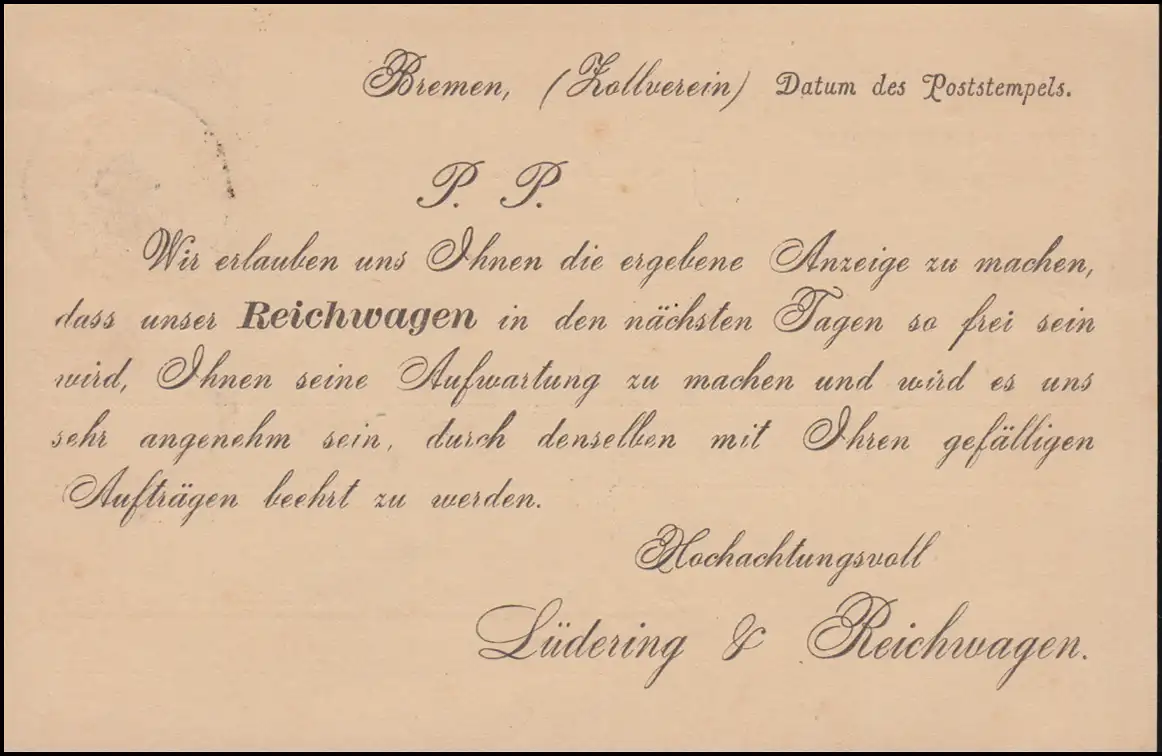 Bremen, (Zollverein) Datum des Poststempels.
P. P.
Wir erlauben uns Ihnen die ergebene Anzeige zu machen,
dass unser Reichwagen in den nächsten Tagen so frei sein
wird, Ihnen seine Aufwartung zu machen und wird es uns
sehr angenehm sein, durch denselben mit Ihren gefälligen
Aufträgen beehrt zu werden.
Hochachtungsvoll
Lüdering & Reichwagen.